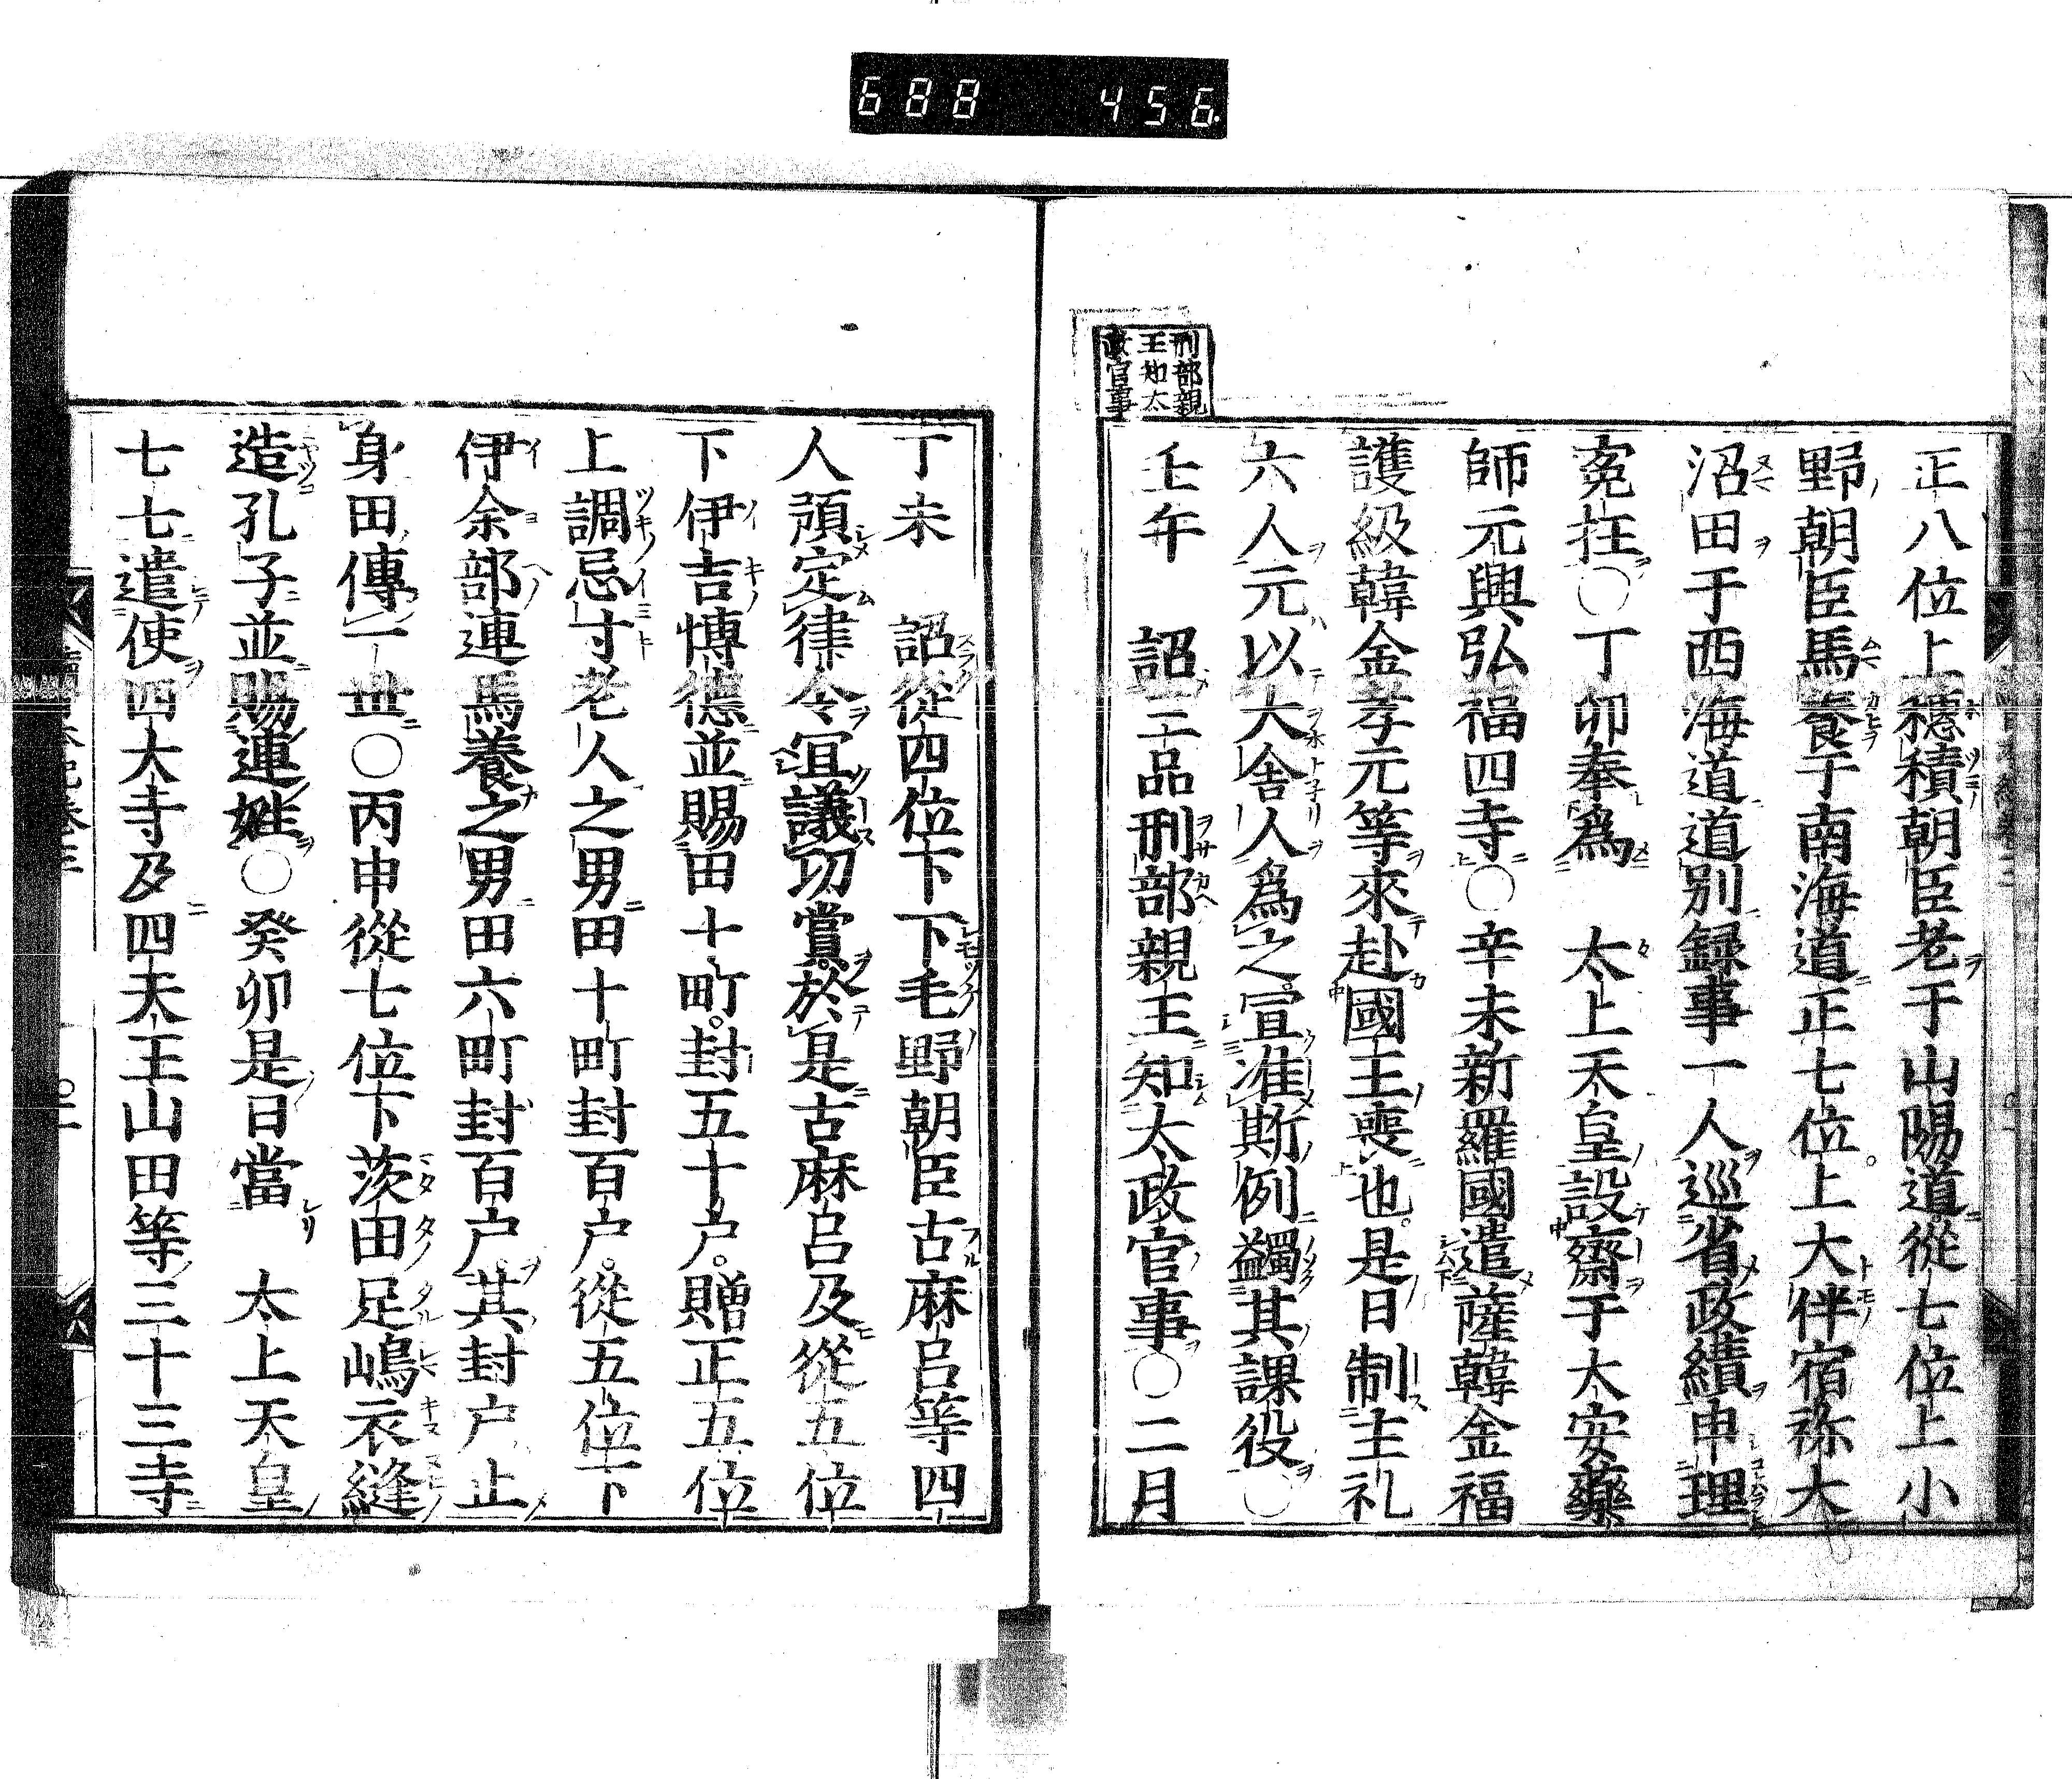 688 456
刑部親
王知太
政官事
正八位上穗積朝臣老于山陽道從七位上小
野朝臣馬養于南海道正七位上大伴宿祢大
沼田于西海道道別録事一人巡省政績申理
寃抂〇丁卯奉爲 太上天皇設齋于大安藥
師元興弘福四寺〇辛未新羅國遣薩韓金福
護級韓金孝元等來赴國王喪也是日制主礼
六人元以大舍人爲之宣准斯例蠲其課役〇
壬午 詔三品刑部親王知太政官事〇二月
丁未 詔從四位下下毛野朝臣古麻呂等四
人預定律令宜議功賞於是古麻呂及從五位
下伊吉博德並賜田十町封五十户贈正五位
上調忌寸老人之男田十町封百户從五位下
伊余部連馬養之男田六町封百户其封户止
身田傳一世〇丙申從七位下茨田足嶋衣縫
造孔子並賜連姓〇癸卯是日當 太上天皇
七七遣使四大寺及四天王山田等三十三寺